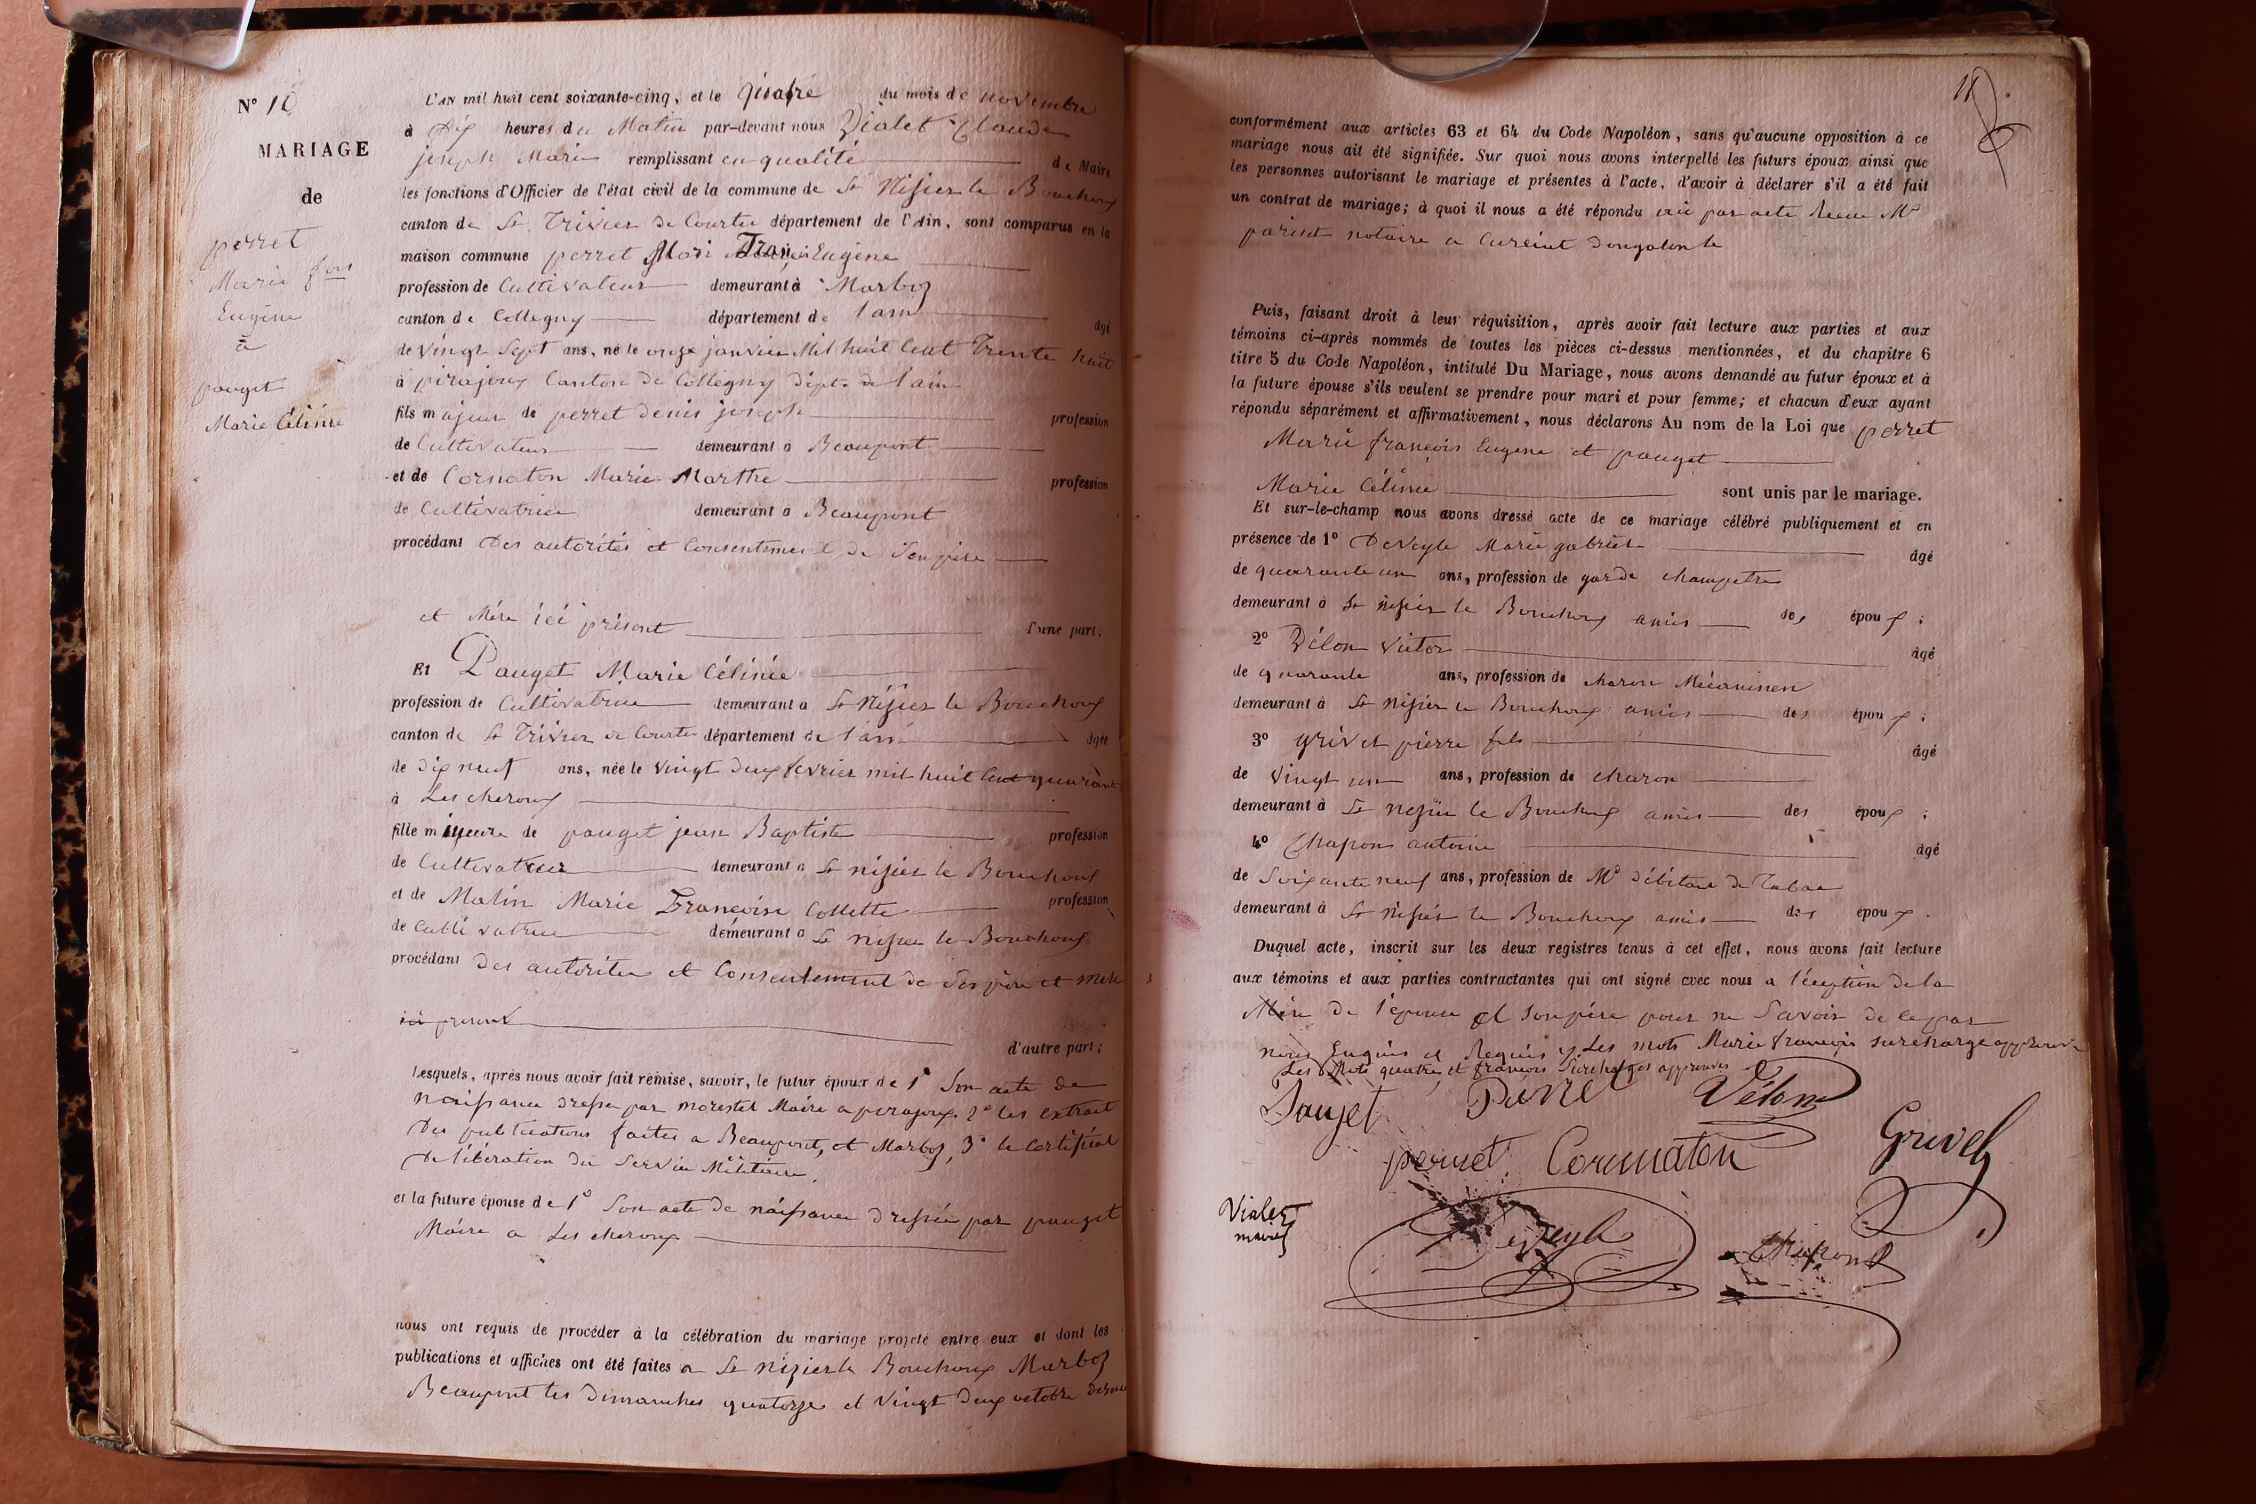 N° 10
MARIAGE
de
perret
Marie fois
Eugène
à
pouget
Marie Célinie
L'AN mil huit cent soixante-cinq, et le quatre du mois de novembre
à Dix heures du Matin par-devant nous Vialet Claude
joseph Marie remplissant en qualité de Maire
les fonctions d'Officier de l'état civil de la commune de St Nisier le Bouchoux
canton de St Trivier de Courtes département de l'Ain, sont comparus en la
maison commune perret Mari François Eugène
profession de Cultivateur demeurant à Marboz
canton de Collegny département de l'ain âgé
de vingt Sept ans, né le onze janvier Mil huit Cent Trente huit
à pirajoux Canton de Collegny dept de l'ain
fils majeur de perret denis joseph profession
de Cultivateur demeurant à Beaupont
et de Cornaton Marie Marthe profession
de Cultivatrice demeurant à Beaupont
procédant Des autorités et Consentement de Son père
et Mère ici présent d'une part;
Et Pouget Marie Célinie
profession de Cultivatrice demeurant à St Nisier le Bouchoux
canton de St Trivier de Courtes département de l'ain âgée
de dix neuf ans, née le vingt deux fevrier mil huit Cent quarante
à Les cheroux
fille mineure de pouget jean Baptiste profession
de Cultivateur demeurant à St nisier le Bouchoux
et de Matin Marie Françoise Collette profession
de Cultivatrice demeurant à St nisier le Bouchoux
procédant Des autorites et Consentement de Ses père et mère
ici present
d'autre part;
Lesquels, après nous avoir fait remise, savoir, le futur époux de 1° Son acte de
naissance dressé par morestel Maire a pirajoux 2° les extrait
Des publications faites a Beaupont, et Marboz, 3° le Certificat
De libération du Service Militaire.
et la future épouse de 1° Son acte de naissance dressée par pouget
Maire a Les cheroux
nous ont requis de procéder à la célébration du mariage projeté entre eux et dont les
publications et affiches ont été faites a St nizier le Bouchoux Marboz
Beaupont les dimanches quatorze et vingt deux octobre dernier
11
conformément aux articles 63 et 64 du Code Napoléon, sans qu'aucune opposition à ce
mariage nous ait été signifiée. Sur quoi nous avons interpellé les futurs époux ainsi que
les personnes autorisant le mariage et présentes à l'acte, d'avoir à déclarer s'il a été fait
un contrat de mariage; à quoi il nous a été répondu oui par acte Recu Me
notaire a
Puis, faisant droit à leur réquisition, après avoir fait lecture aux parties et aux
témoins ci-après nommés de toutes les pièces ci-dessus mentionnées, et du chapitre 6
titre 5 du Code Napoléon, intitulé Du Mariage, nous avons demandé au futur époux et à
la future épouse s'ils veulent se prendre pour mari et pour femme; et chacun d'eux ayant
répondu séparément et affirmativement, nous déclarons Au nom de la Loi que perret
Marie françois Eugene et pouget
Marie Célinie sont unis par le mariage.
Et sur-le-champ nous avons dressé acte de ce mariage célébré publiquement et en
présence de 1° Deveyle Marie gabriel âgé
de quarante un ans, profession de garde champetre
demeurant à St nisier le Bouchoux amis des époux;
2° Vélon Victor âgé
de quarante ans, profession de charon Mécaninen
demeurant à St nisier le Bouchoux amis des époux;
3° grivet pierre fils âgé
de vingt un ans, profession de charon
demeurant à St nisier le Bouchoux amis des époux;
4° Chapon antoine âgé
de Soixante neuf ans, profession de Md débitant de Tabac
demeurant à St nisier le Bouchoux amis des époux.
Duquel acte, inscrit sur les deux registres tenus à cet effet, nous avons fait lecture
aux témoins et aux parties contractantes qui ont signé avec nous a l'éception de la
Mère de l'epouse et son père pour ne Savoir de ce par
nous Enquis et Requis Les mots Marie françois surcharge approuve
Les Mots quatre et françois Surcharges approuves
Pouget Perret Vélon
perret Cornnaton Grivel
Vialet
maire
Deveyle Chapond